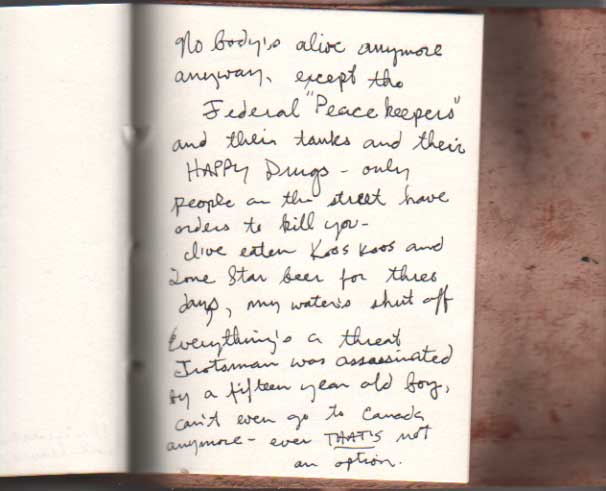 Nobody's alive anymore
anyway, except the
Federal "Peace keepers"
and their tanks and their
HAPPY Drugs - only
people on the street have
orders to kill you -
I've eaten Koos Koos and
Lone Star beer for three
days, my water's shut off
Everything's a threat
Trotsman was assassinated
by a fifteen year old boy,
can't even go to Canada
anymore - even THAT'S not
an option.